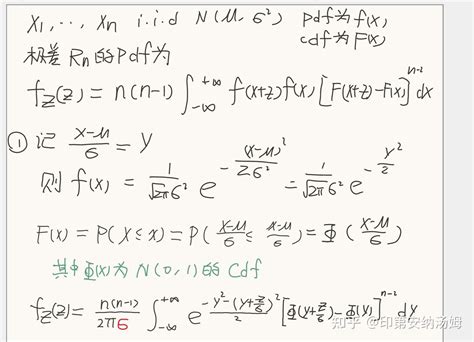 X₁, ..., Xn i.i.d N(μ, σ²) pdf为f(x)
cdf为F(x)
极差Rn的Pdf为
f_Z(z) = n(n-1) ∫_{-∞}^{+∞} f(x+z)f(x) [F(x+z)-F(x)]^{n-2} dx
① 记 (x-μ)/σ = y
则 f(x) = 1/√(2πσ²) e^{-(x-μ)²/(2σ²)} = 1/√(2πσ²) e^{-y²/2}
F(x) = P(X≤x) = P((X-μ)/σ ≤ (x-μ)/σ) = Φ((x-μ)/σ)
其中Φ(x)为N(0,1)的Cdf
f_Z(z) = n(n-1)/(2πσ) ∫_{-∞}^{+∞} e^{(-y²-(y+z/σ)²)/2} [Φ(y+z/σ)-Φ(y)]^{n-2} dy
知乎 @印第安纳汤姆